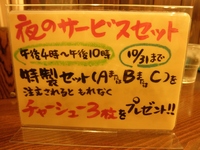 夜のサービスセット
午後4時〜午後10時 10/31まで
特製セット(AまたはBまたはC)を
注文されると もれなく
チャーシュー3枚をプレゼント!!